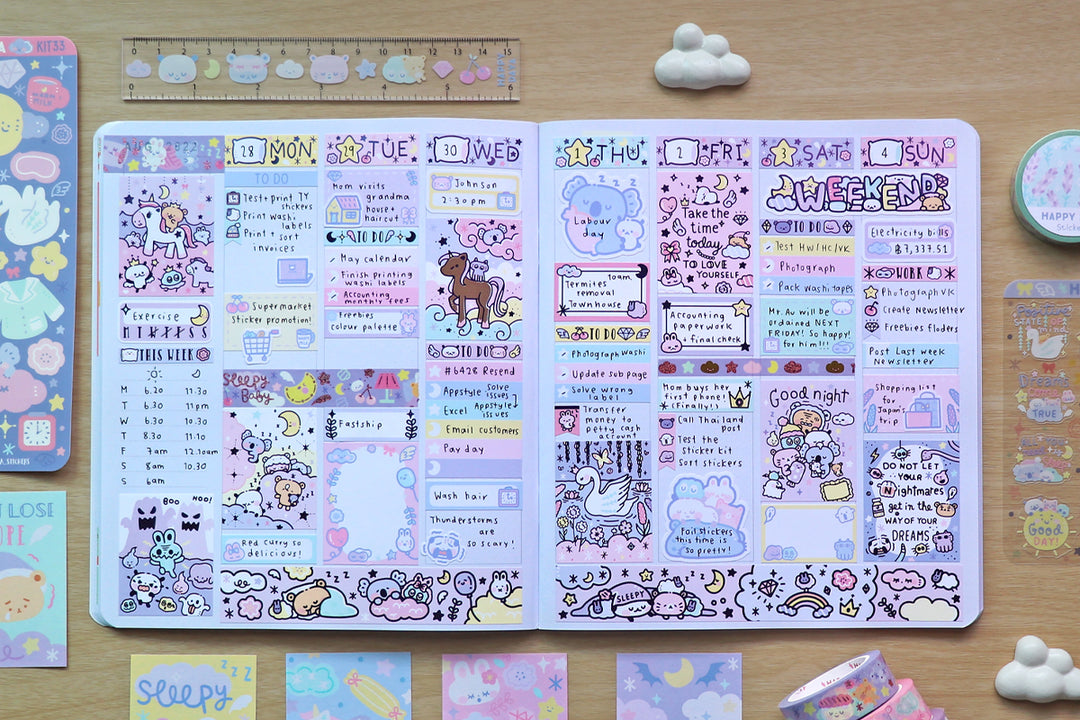 KIT33
0 1 2 3 4 5 6 7 8 9 10 11 12 13 14 15
0 1 2 6
WARM MILK
AUG 2022
28 MON
29 TUE
30 WED
1 THU
2 FRI
3 SAT
4 SUN
Exercise
M T S
THIS WEEK
M 6.20 11.30
T 6.30 11pm
W 6.30 10.30
T 8.30 11.10
F 7am 12.10am
S 8am 10.30
S 6am
BOO HOO!
TO DO
Test+print TY
stickers
Print washi
labels
Print + sort
invoices
Supermarket
sticker promotion!
Sleepy
Baby
Red curry so
delicious!
zzz
Mom visits
grandma
house+
haircut
TO DO
May calendar
Finish printing
washi labels
Accounting
monthly fees
Freebies
colour palette
Fastship
Johnson
2:30pm
TO DO
#6426 Resend
Appstyle Solve issues
Excel Appstyle issues
Email customers
Pay day
Wash hair
Thunderstorms
are
so scary!
zzz
Labour
day
10am
Termites
removal
Townhouse
TO DO
Photograph washi
Update sub page
Solve wrong
label
Transfer
money to
petty cash
account
SLEEPY
zzz
Take the
time
today
TO LOVE
YOURSELF
Accounting
paperwork
+ final check
Mom buys her
first phone!
(Finally!)
Call Thailand
post
Test the
Sticker kit
Sort stickers
Foil stickers
this time is
so pretty!
WEEKEND
TO DO
Test HW/HC/VK
Photograph
Pack washi tapes
Mr. Au will be
ordained NEXT
FRIDAY! So happy!
for him!!!
Good night
Electricity bills
฿7,337.51
WORK
Photograph VK
Create Newsletter
Freebies floders
Post Last week
Newsletter
Shopping list
for
Japan's
trip
DO NOT LET
YOUR
Nightmares
get in the
WAY OF YOUR
DREAMS
HAPPY
Sticke
state
mind
Dreams
TRUE
Good
DAY!
A_STICKERS
LOSE
OPE
Sleepy
zzz